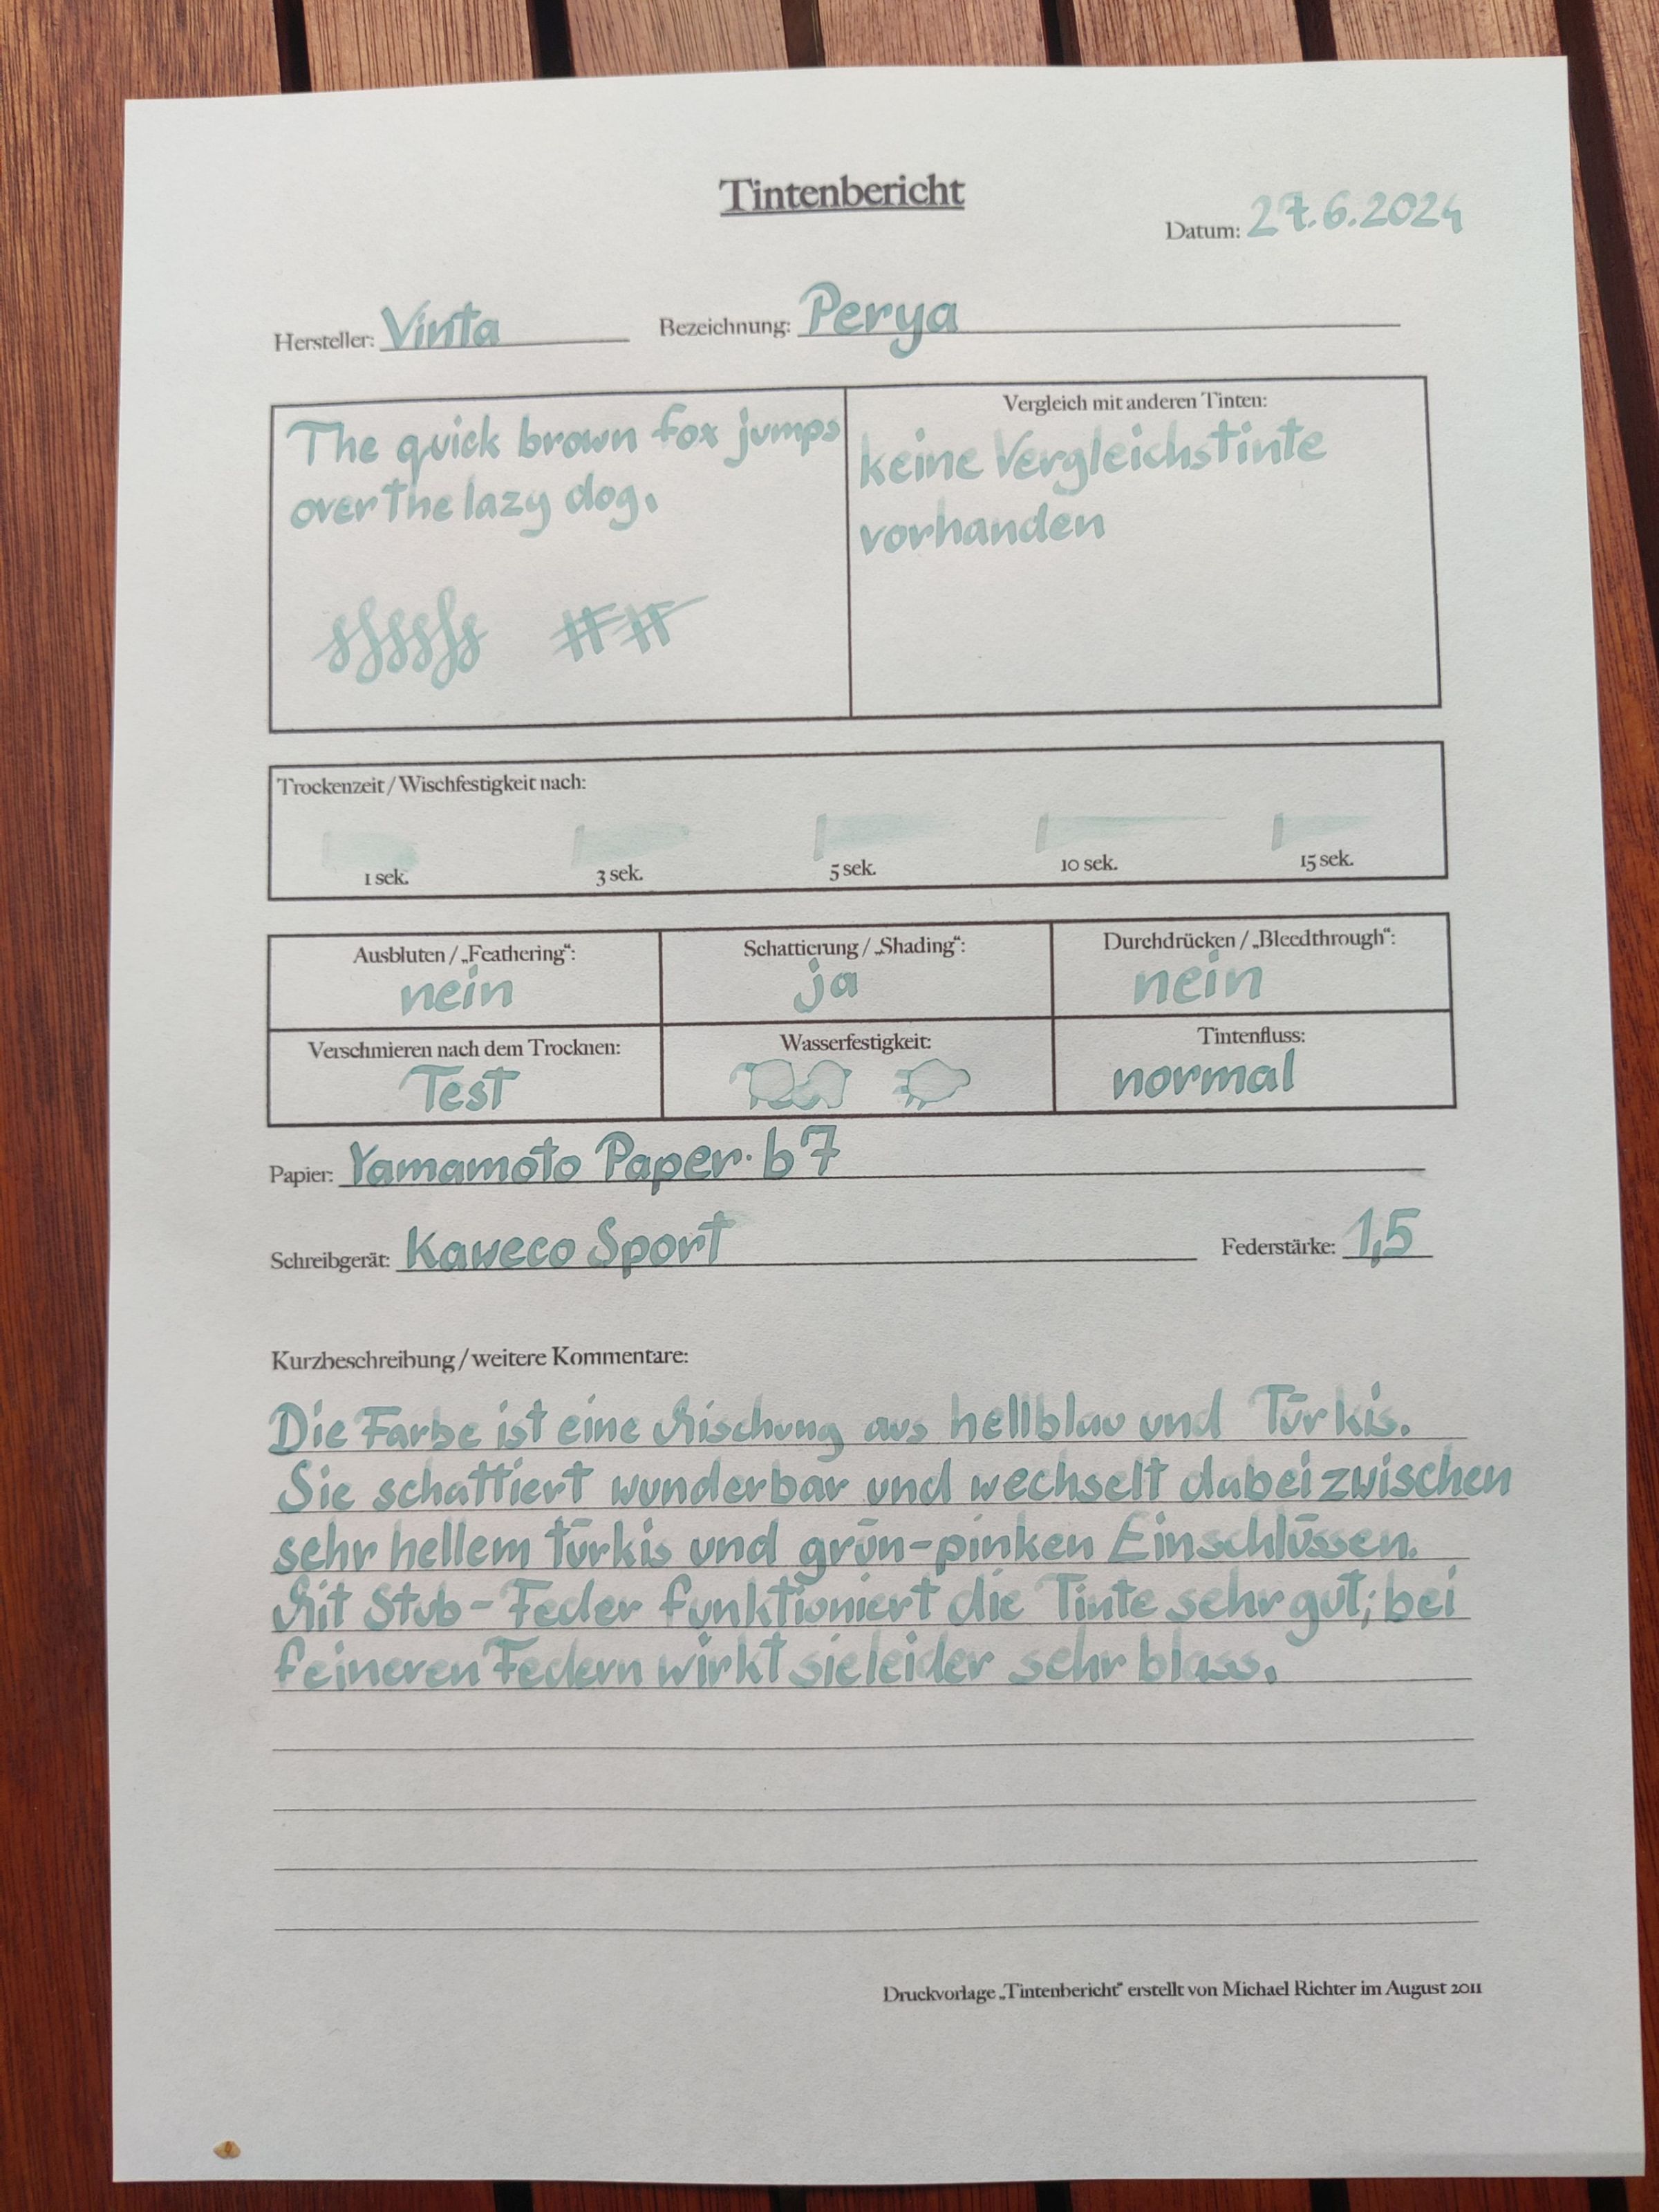 Tintenbericht
Datum: 27.6.2024
Hersteller: Vinta Bezeichnung: Perya
The quick brown fox jumps
over the lazy dog.
Vergleich mit anderen Tinten:
keine Vergleichstinte
vorhanden
Trockenzeit / Wischfestigkeit nach:
1 sek. 3 sek. 5 sek. 10 sek. 15 sek.
Ausbluten / „Feathering“: Schattierung / „Shading“: Durchdrücken / „Bleedthrough“:
nein ja nein
Verschmieren nach dem Trocknen: Wasserfestigkeit: Tintenfluss:
Test normal
Papier: Yamamoto Paper · b7
Schreibgerät: Kaweco Sport Federstärke: 1,5
Kurzbeschreibung / weitere Kommentare:
Die Farbe ist eine Mischung aus hellblau und Türkis.
Sie schattiert wunderbar und wechselt dabei zwischen
sehr hellem türkis und grün-pinken Einschlüssen.
Mit Stub-Feder funktioniert die Tinte sehr gut; bei
feineren Federn wirkt sie leider sehr blass.
Druckvorlage „Tintenbericht“ erstellt von Michael Richter im August 2011